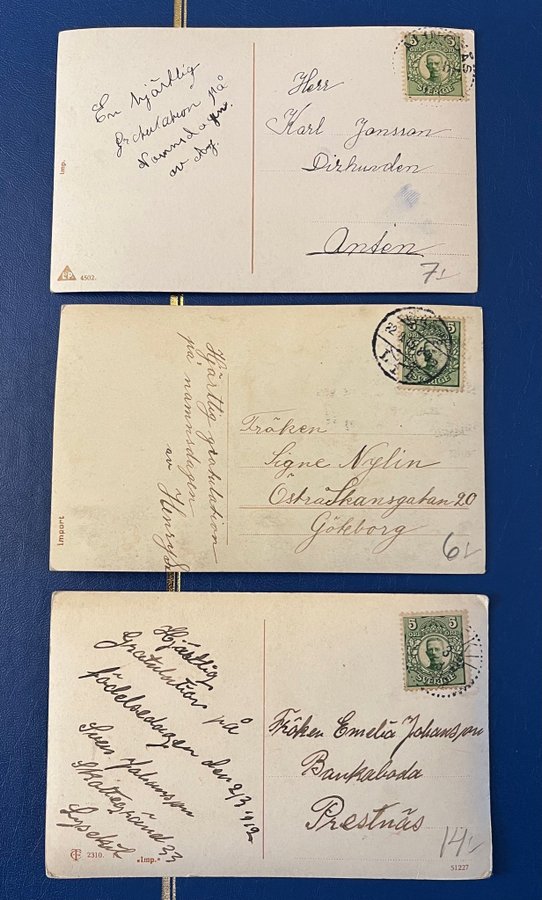 En hjärtlig
Gratulation på
Namnsdagen.
av
Herr
Karl Jonsson
Dirhuvden
Anten
7:-
Imp.
4502.
SVERIGE
Hjärtlig gratulation
på namnsdagen
av Henry
Fröken
Signe Nylin
Östra Skansgatan 20
Göteborg
6:-
Import
5
SVERIGE
Hjärtlig
Gratulation på
födelsedagen den 2/3 1912
Sven Johansson
Skottegränd 23
Lysekil
Fröken Emelia Johansson
Bankaboda
Prestnäs
14:-
5 5
SVERIGE
2310.
"Imp."
51227